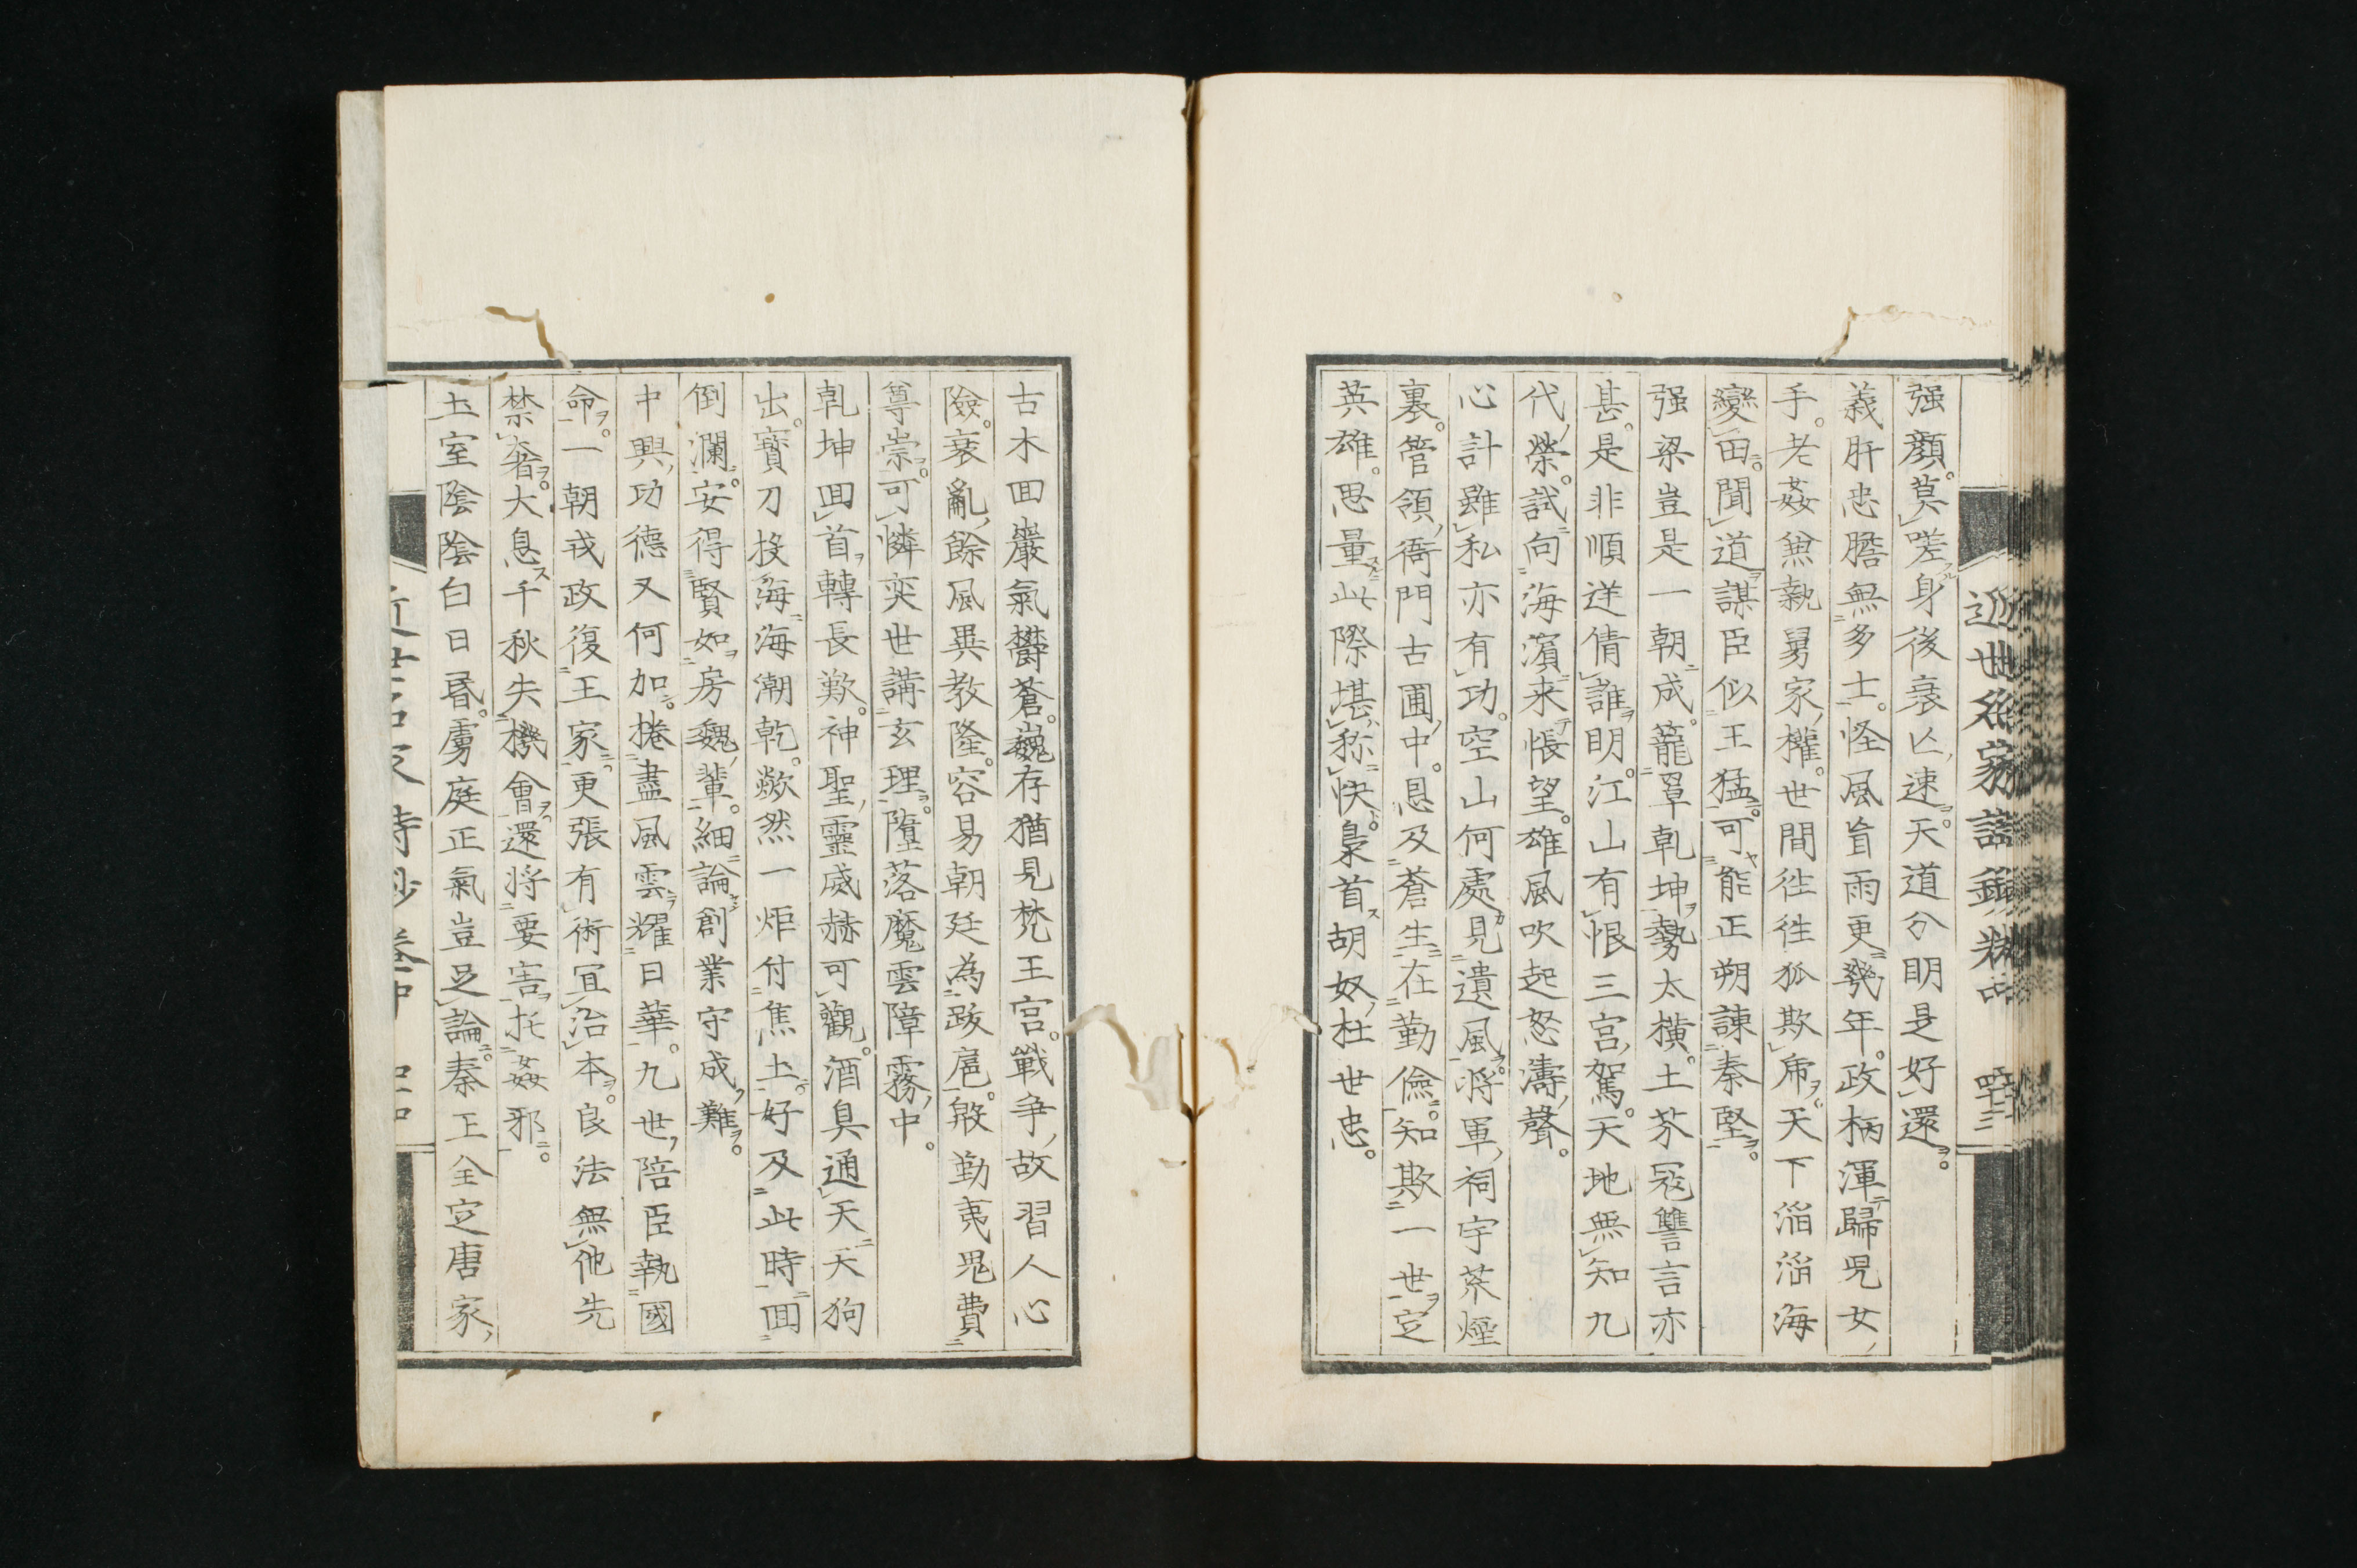 强顔。莫嗟身後衰亡速。天道分明是好還。
義肝忠膽無多士。怪風盲雨更幾年。政柄渾歸兒女
手。老姦兼執舅家權。世間往往狐欺虎。天下滔滔海
變田。聞道謀臣似王猛。可能正朔諌秦堅。
强梁豈是一朝成。籠罩乾坤勢太横。土芥冦讐言亦
甚。是非順逆倩誰明。江山有恨三宮駕。天地無知九
代榮。試向海濱来悵望。雄風吹起怒濤聲。
心計雖私亦有功。空山何處見遺風。将軍祠宇茶煙
裏。管領衙門古圃中。恩及蒼生在勤儉。知欺一世定
英雄。思量此際堪称快。梟首胡奴杜世忠。
近世名家詩鈔 卷中 四十三
古木回巖氣欝蒼。巍存猶見梵王宮。戰争故習人心
險。衰亂餘風異教隆。容易朝廷為跋扈。殷勤夷鬼費
尊崇。可憐奕世講玄理。墮落魔雲障霧中。
乹坤回首轉長歎。神聖靈威赫可觀。酒臭通天天狗
出。寳刀投海海潮乾。歘然一炬付焦土。好及此時回
倒瀾。安得賢如房魏輩。細論創業守成難。
中興功徳又何加。捲盡風雲耀日華。九世陪臣執國
命。一朝戎政復王家。更張有術宜治本。良法無他先
禁奢。大息千秋失機會。還将要害托姦邪。
土室陰陰白日昏。虜庭正氣豈足論。秦王全定唐家